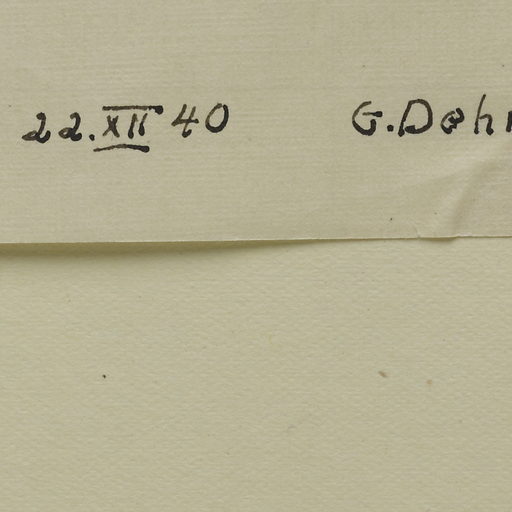 22.XII 40 G.Deh